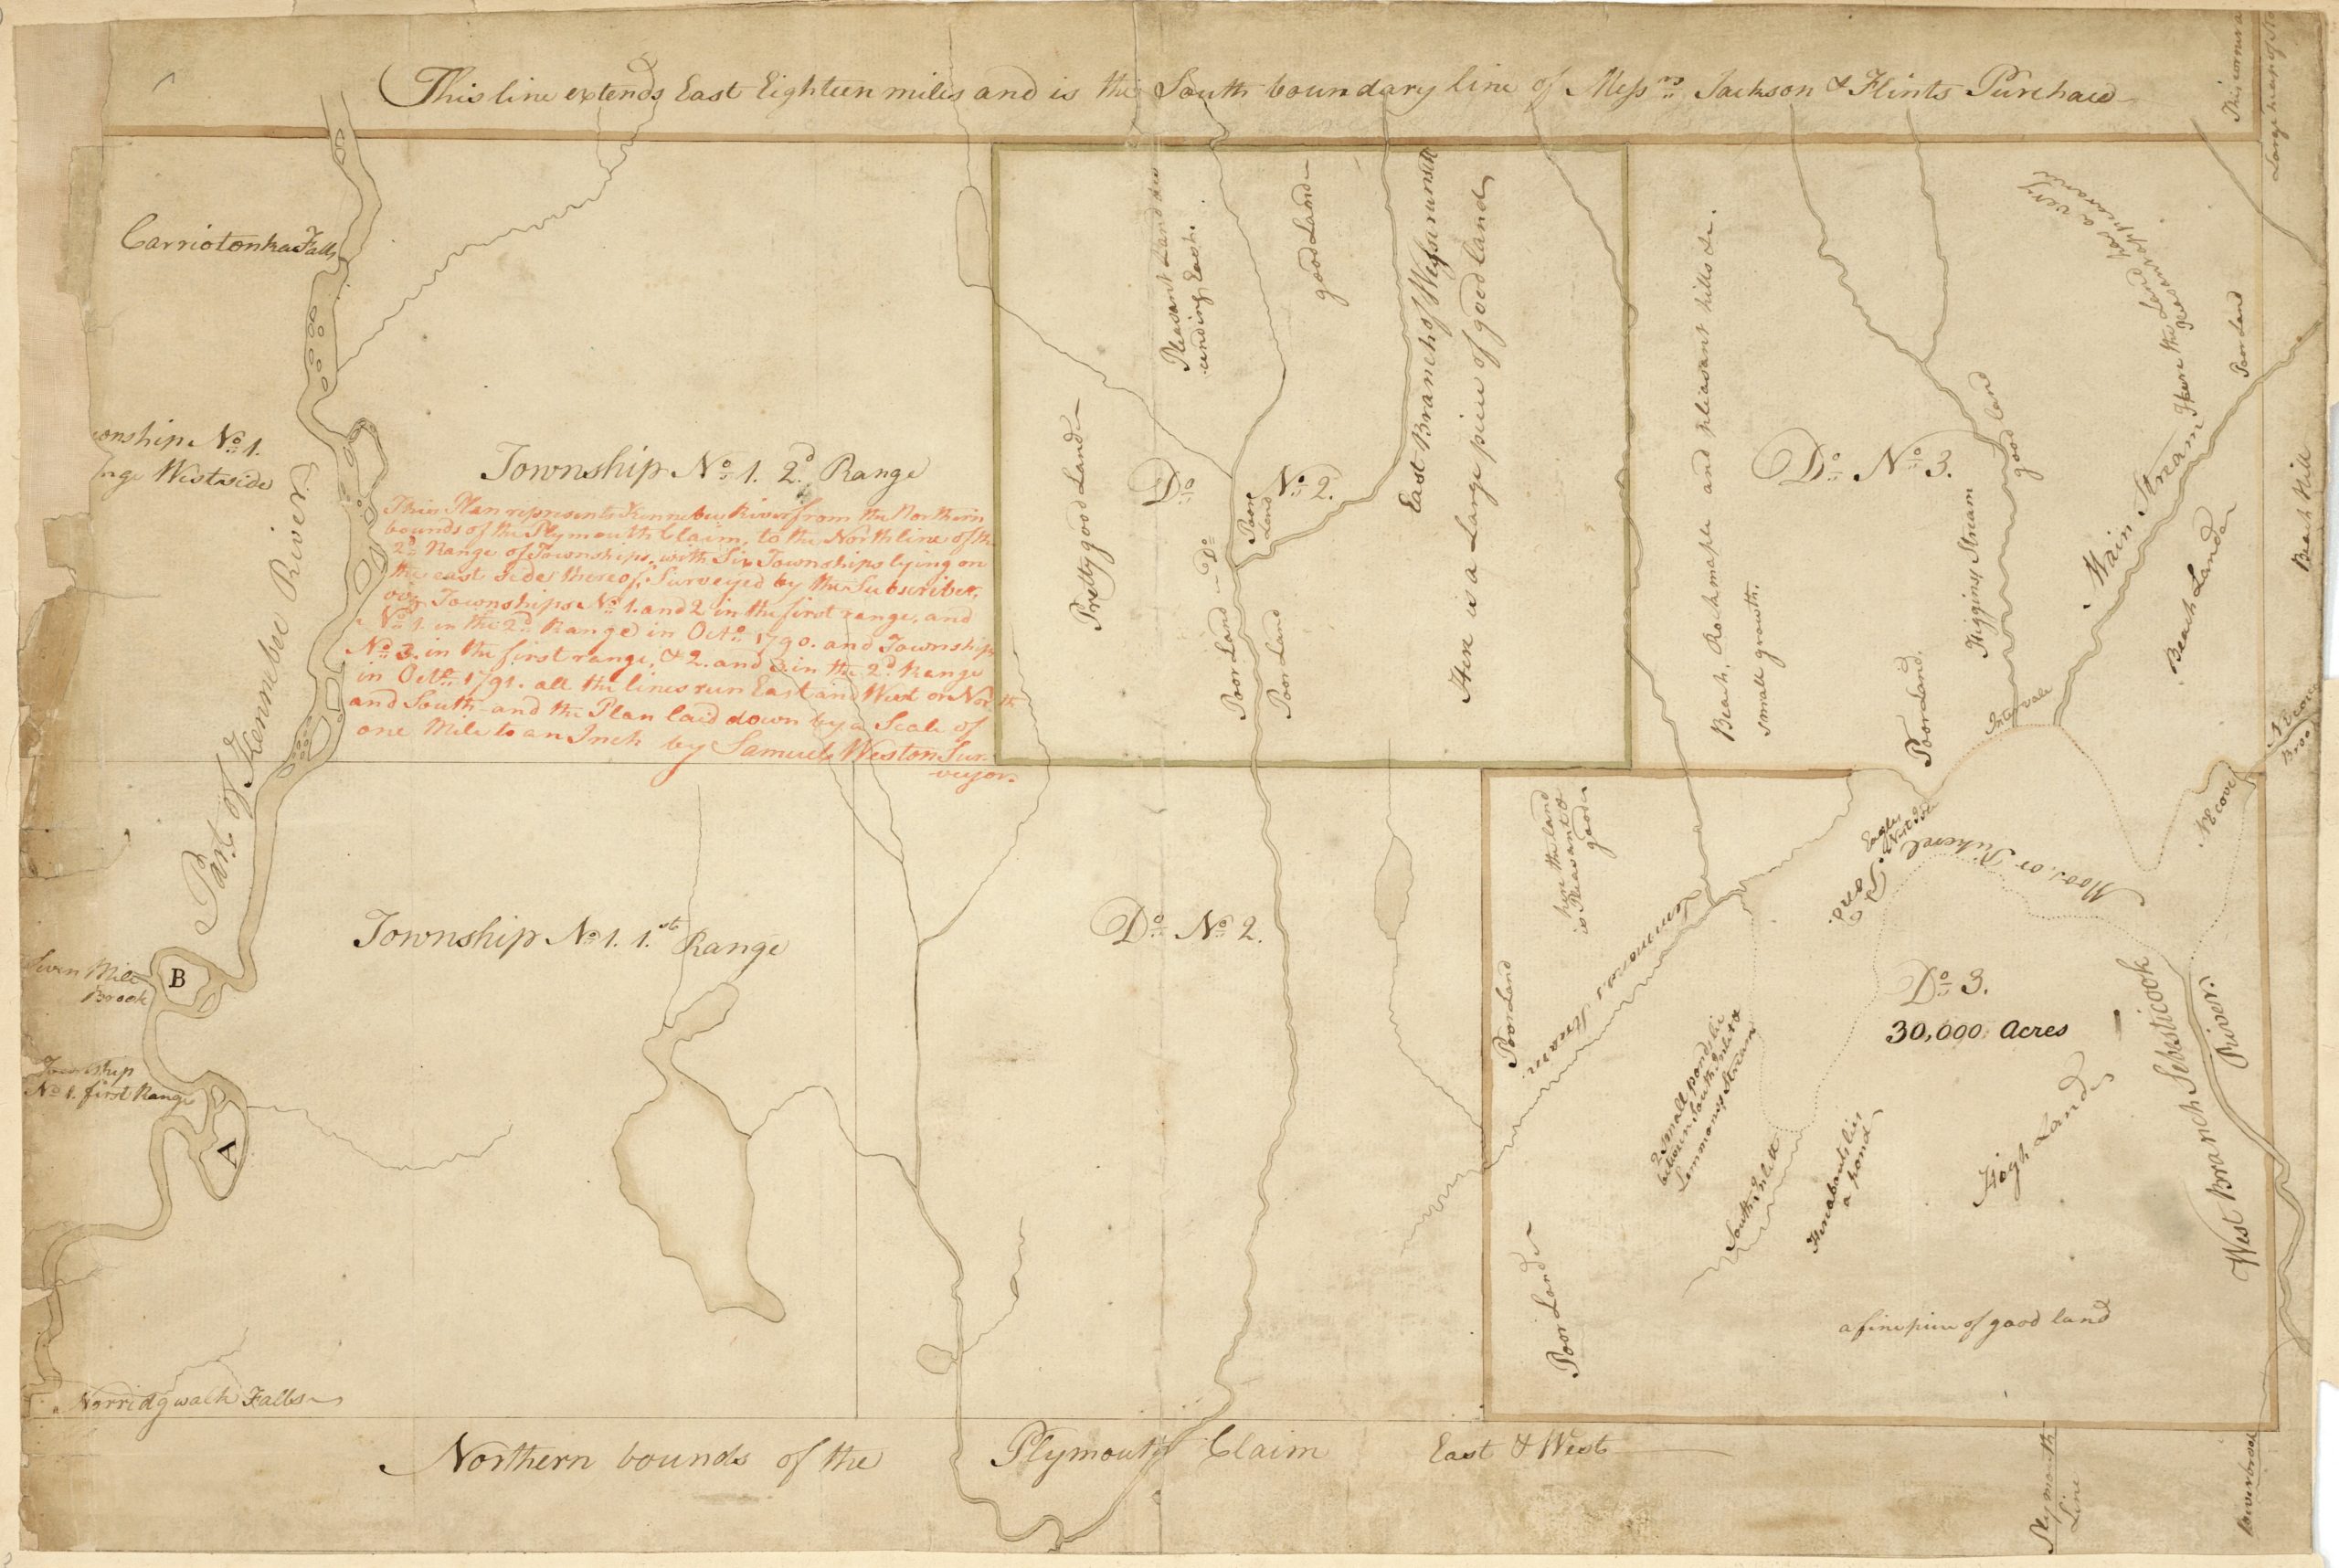 This line extends East Eighteen miles and is the South boundary line of Mess.rs Jackson & Flints Purchase
This corner a
Large piece of
Carriotonka Falls
onship No. 1.
nge West side
Part of Kennebec River
Township No. 1. 2d. Range
This Plan represents Kennebec River from the Northern
bounds of the Plymouth Claim, to the North line of the
2d. Range of Townships, with Six Townships lying on
the east side thereof, Surveyed by the Subscriber,
viz Townships No. 1. and 2 in the first range, and
No. 1. in the 2d. Range in Octo. 1790. and Township
No. 3. in the first range, & 2. and 3. in the 2d. Range
in Octo. 1791. all the lines run East and West or North
and South and the Plan laid down by a Scale of
one Mile to an Inch by Samuel Weston Sur-
veyor.
Pretty good Land
Pleasant Land des
cending East.
good Land
Do. No. 2.
Poor
Land
Poor Land Do.
Poor Land
East Branch of Wesserunsett
Here is a Large piece of good land
Beach, Rockmaple and pleasant hills &c.
small growth.
Do. No. 3.
good land
Higgins Stream
Main Stream
Here the Land has a very
pleasant appearance
Poor Land
Beach Hill
Beach Land
Poor Land.
Intervale
NE cove
Brook
NE cove
Moos. or Pickerel
Pond.
Eagles
Nest
here the land
is Pleasant &
good
Poor Land
Lemmons Stream.
2 Small ponds lie
between South Inlet &
Lemmons Stream
South Inlett
Hereabouts lies
a pond
High Land
Do. 3.
30,000 Acres
West Branch Sebesticook
River.
a fine piece of good land
Poor Land
Township No. 1. 1.st Range
Do. No. 2.
Seven Mile
Brook
B
Township
No. 1. first Range
A
Norridgwalk Falls
Northern bounds of the Plymouth Claim East & West
Plymouth
Line